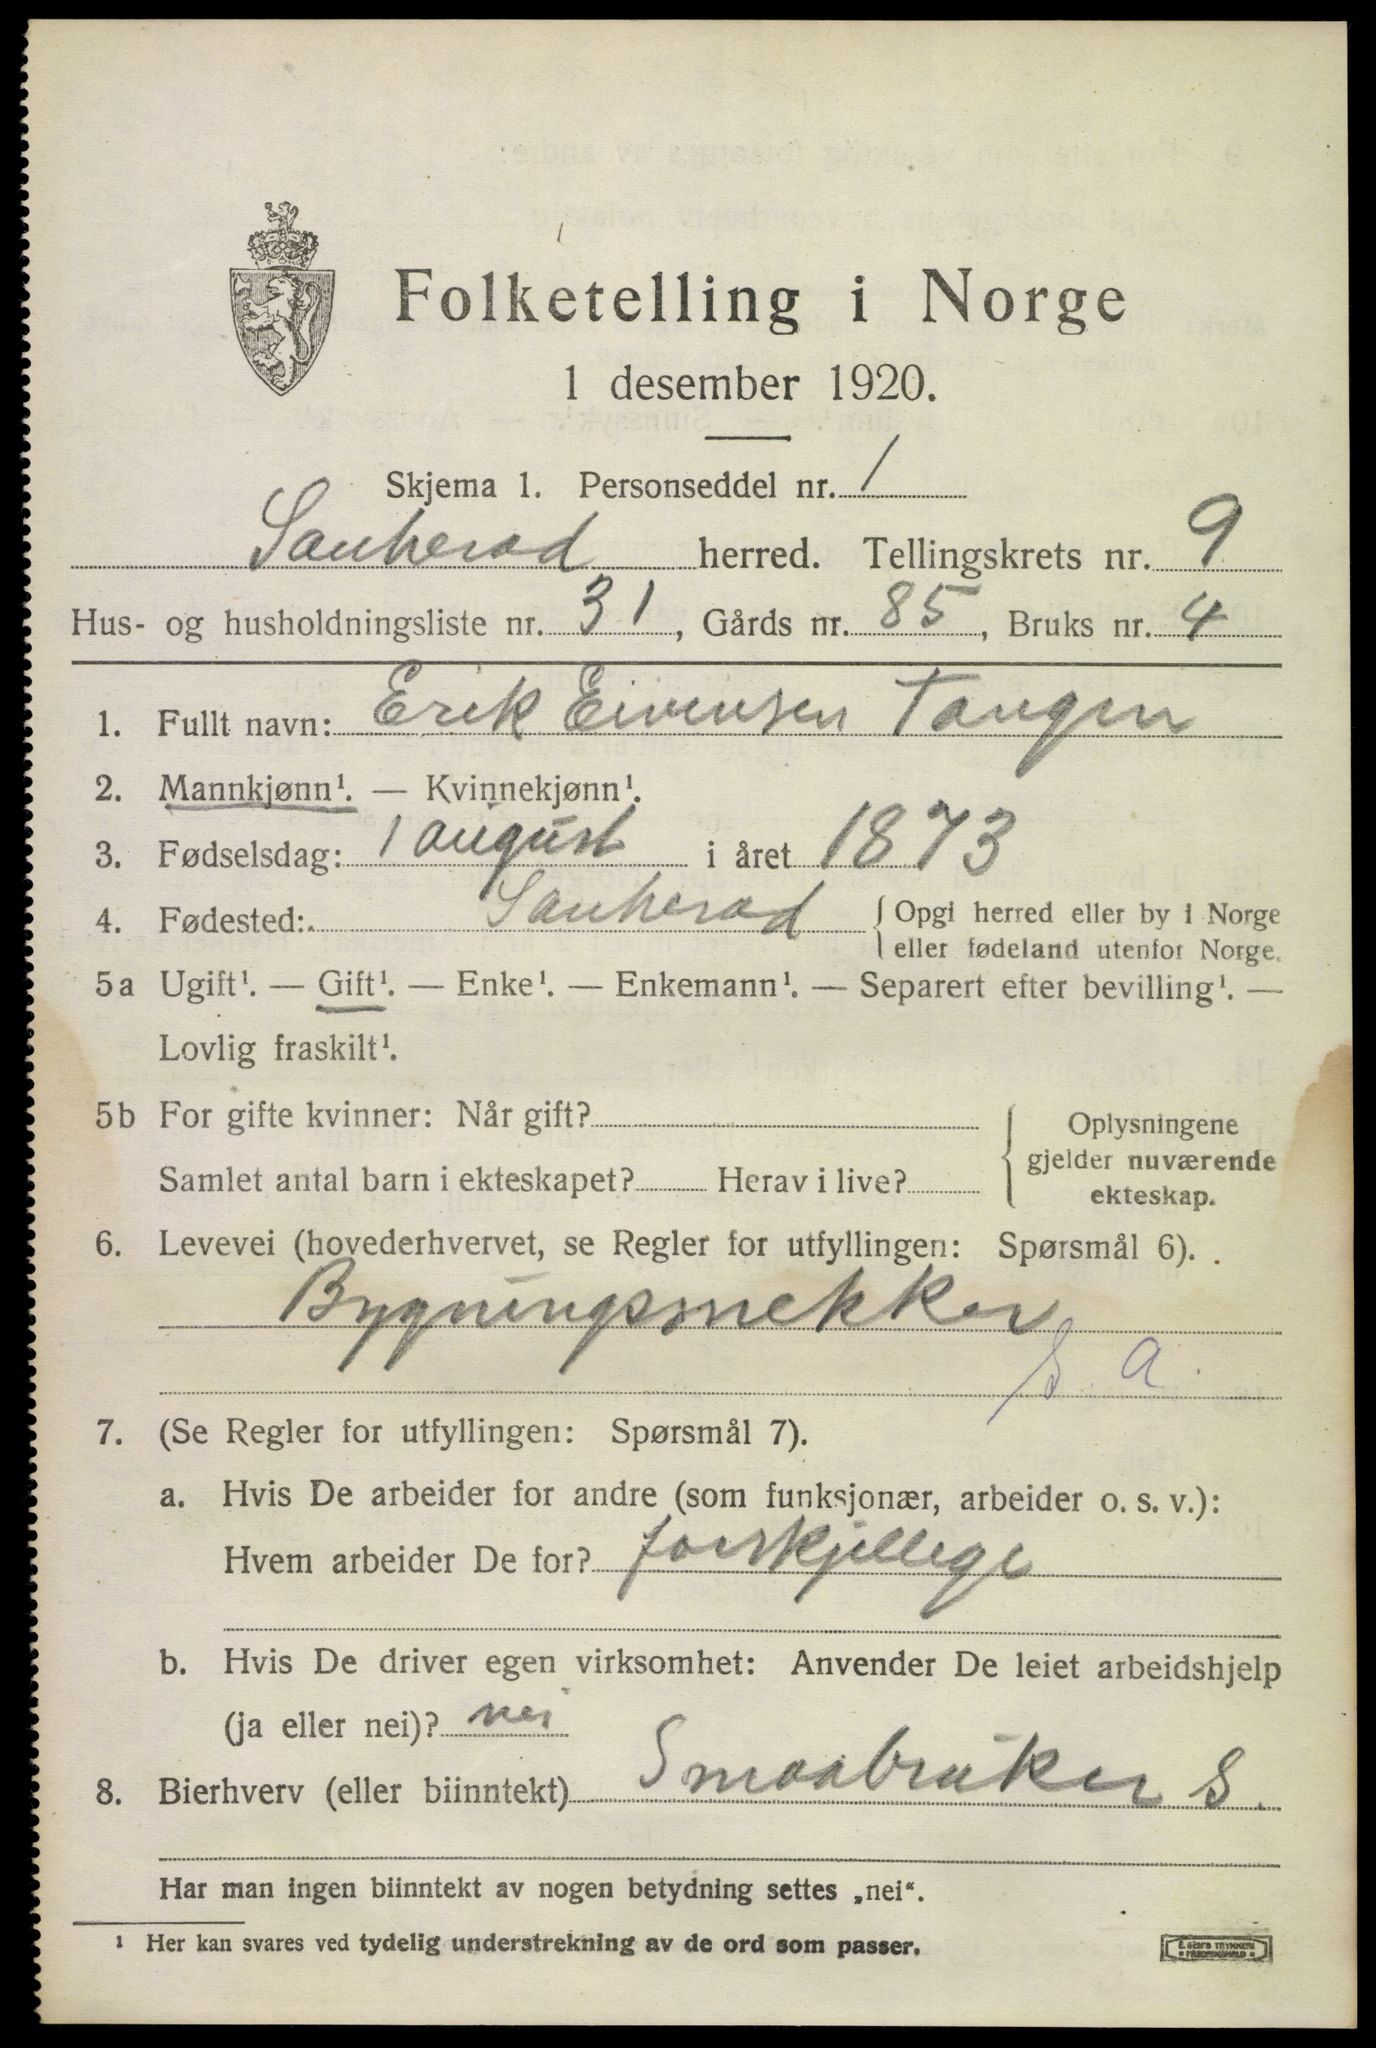 Folketelling i Norge
1 desember 1920.
Skjema 1. Personseddel nr. 1
Sauherad herred. Tellingskrets nr. 9
Hus- og husholdningsliste nr. 31, Gårds nr. 85, Bruks nr. 4
1. Fullt navn: Erik Eivensen Tangen
2. Mannkjønn¹. — Kvinnekjønn¹.
3. Fødselsdag: 1 august i året 1873
4. Fødested: Sauherad { Opgi herred eller by i Norge
eller fødeland utenfor Norge.
5a Ugift¹. — Gift¹. — Enke¹. — Enkemann¹. — Separert efter bevilling¹. —
Lovlig fraskilt¹.
5b For gifte kvinner: Når gift? { Oplysningene
gjelder nuværende
Samlet antal barn i ekteskapet? Herav i live? ekteskap.
6. Levevei (hovederhvervet, se Regler for utfyllingen: Spørsmål 6).
Bygningsnekker
S. a.
7. (Se Regler for utfyllingen: Spørsmål 7).
a. Hvis De arbeider for andre (som funksjonær, arbeider o. s. v.):
Hvem arbeider De for? forskjellege
b. Hvis De driver egen virksomhet: Anvender De leiet arbeidshjelp
(ja eller nei)? nei
8. Bierhverv (eller biinntekt) Smaabruker S.
Har man ingen biinntekt av nogen betydning settes „nei“.
¹ Her kan svares ved tydelig understrekning av de ord som passer.
E. SEM'S TRYKKERI
FREDRIKSHALD